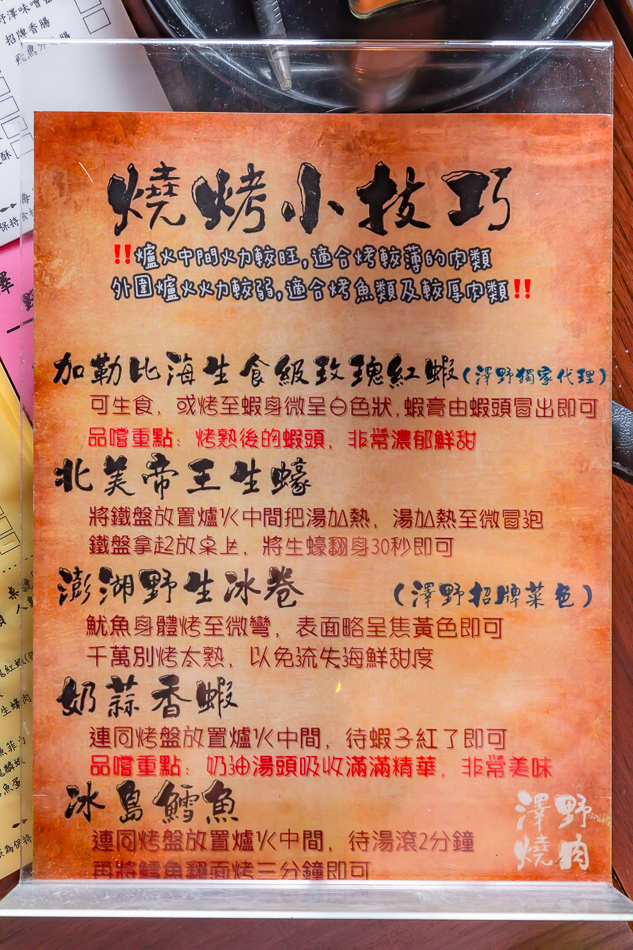 招牌香腸
燒烤小技巧
‼爐火中間火力較旺,適合烤較薄的肉類
外圍爐火火力較弱,適合烤魚類及較厚肉類‼
加勒比海生食級玫瑰紅蝦(澤野獨家代理)
可生食，或烤至蝦身微呈白色狀,蝦膏由蝦頭冒出即可
品嚐重點：烤熟後的蝦頭，非常濃郁鮮甜
北美帝王生蠔
將鐵盤放置爐火中間把湯加熱，湯加熱至微冒泡
鐵盤拿起放桌上，將生蠔翻身30秒即可
澎湖野生冰卷 (澤野招牌菜色)
魷魚身體烤至微彎，表面略呈焦黃色即可
千萬別烤太熟，以免流失海鮮甜度
奶蒜香蝦
連同烤盤放置爐火中間，待蝦子紅了即可
品嚐重點：奶油湯頭吸收滿滿精華，非常美味
冰島鱈魚
連同烤盤放置爐火中間，待湯滾2分鐘
再將鱈魚翻面烤三分鐘即可
澤野
燒肉